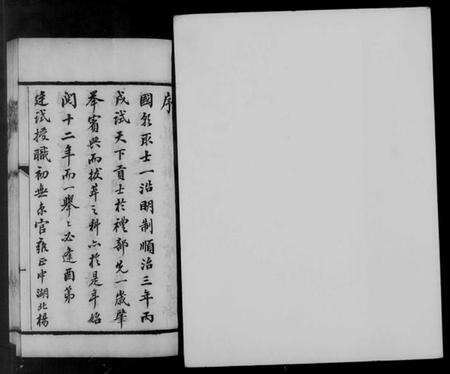 序
國朝取士一沿明制順治三年丙
戌試天下貢士於禮部先一歲肇
舉賓興而拔萃之科亦於是年始
閱十二年而一舉舉必逢酉第
廷試授職初無京官雍正中湖北楊